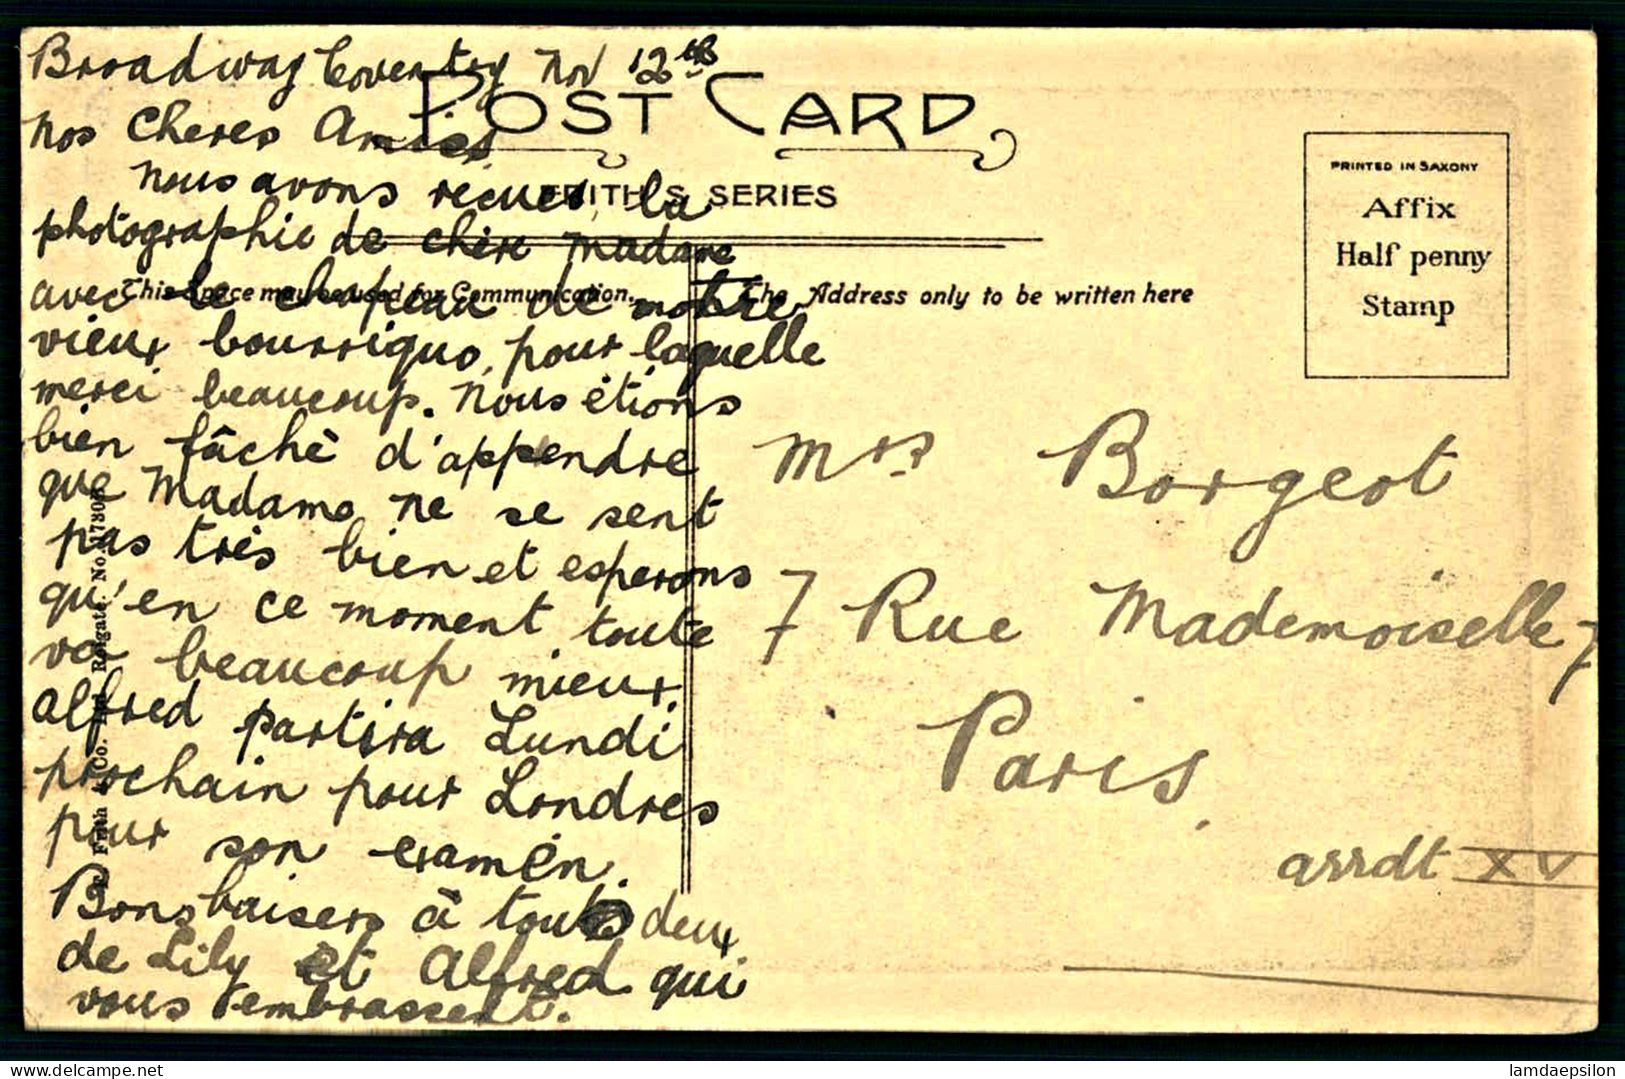 Broadway Coventry Nov 12th
POST CARD
nos cheres Amies
nous avons recues la
FRITH'S SERIES
photographie de chère madame
avec le chapeau de notre
This Space may be used for Communication.
The Address only to be written here
vieux bourriquo, pour laquelle
merci beaucoup. Nous étions
bien fâchê d'appendre
que Madame ne se sent
pas très bien et esperons
qu'en ce moment toute
va beaucoup mieux.
Alfred partira Lundi
prochain pour Londres
pour son examên.
Bons baisers à touts deux
de Lily et Alfred qui
vous embrassent.
F. Frith & Co. Ltd. Reigate. No.
PRINTED IN SAXONY
Affix
Half penny
Stamp
Mrs Borgeot
7 Rue Mademoiselle 7
Paris
arrdt XV
delcampe.net
lamdaepsilon